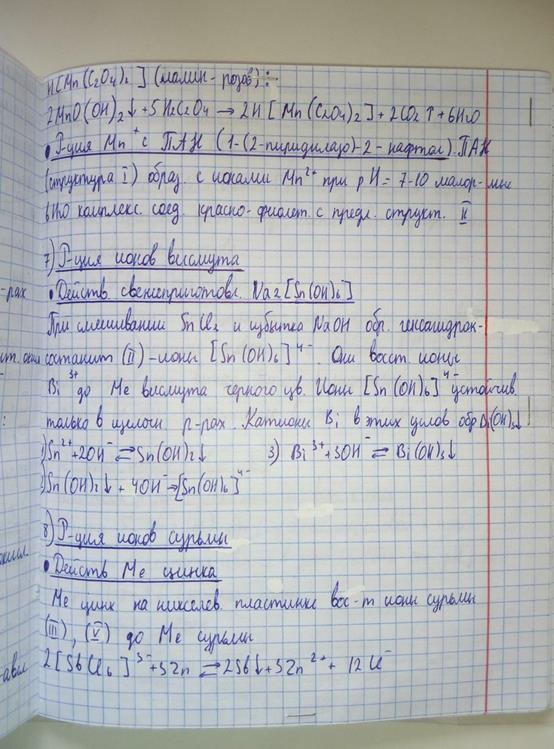 H[Mn(C₂O₄)₂] (малин-розов) ÷
2MnO(OH)₂↓+5H₂C₂O₄ → 2H[Mn(C₂O₄)₂]+2CO₂↑+6H₂O
• Р-ция Mn⁺ с ПАН (1-(2-пиридилазо)-2-нафтол). ПАН
(структура I) образ. с ионами Mn²⁺ при pH=7-10 малор-мые
в H₂O комплекс. соед. красно-фиолет. с предп. структ. II
7) Р-ция ионов висмута
• Действ. свежеприготовл. Na₂[Sn(OH)₆]
-рах
При смешивании SnCl₂ и избытка NaOH обр. гексагидрок-
состанит (II)-ионы [Sn(OH)₆]⁴⁻. Они восст. ионы
Bi³⁺ до Ме висмута черного цв. Ионы [Sn(OH)₆]⁴⁻ устойчив.
только в щелочн. р-рах. Катионы Bi в этих услов. обр Bi(OH)₃↓
1) Sn²⁺+2OH⁻ ⇄ Sn(OH)₂↓ 3) Bi³⁺+3OH⁻ ⇄ Bi(OH)₃↓
2) Sn(OH)₂↓ + 4OH⁻→[Sn(OH)₆]⁴⁻
8) Р-ция ионов сурьмы
• Действ Ме цинка
Ме цинк на никелев. пластинке вос-т ионы сурьмы
(III), (V) до Ме сурьмы
2[SbCl₆]³⁻+3Zn ⇄ 2Sb↓+3Zn²⁺ + 12Cl⁻